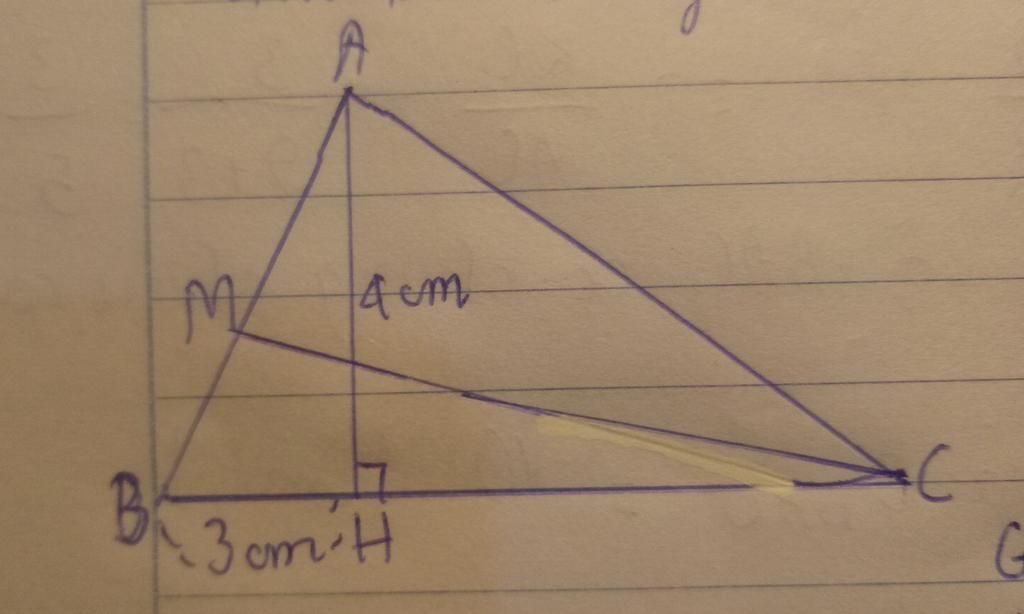 A
M
4cm
B
3cm
H
C
G